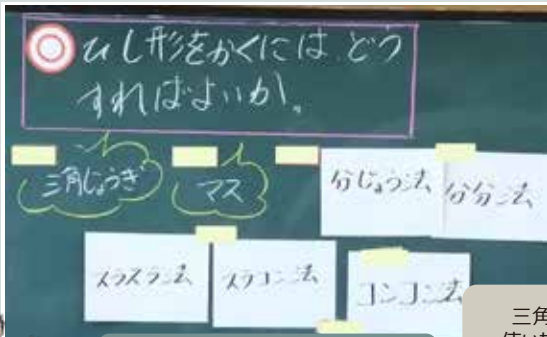 ひし形をかくには、どう
すればよいか。
三角じょうぎ
マス
分じょう法
分分法
スラスラ法
スラコン法
コンコン法
三角